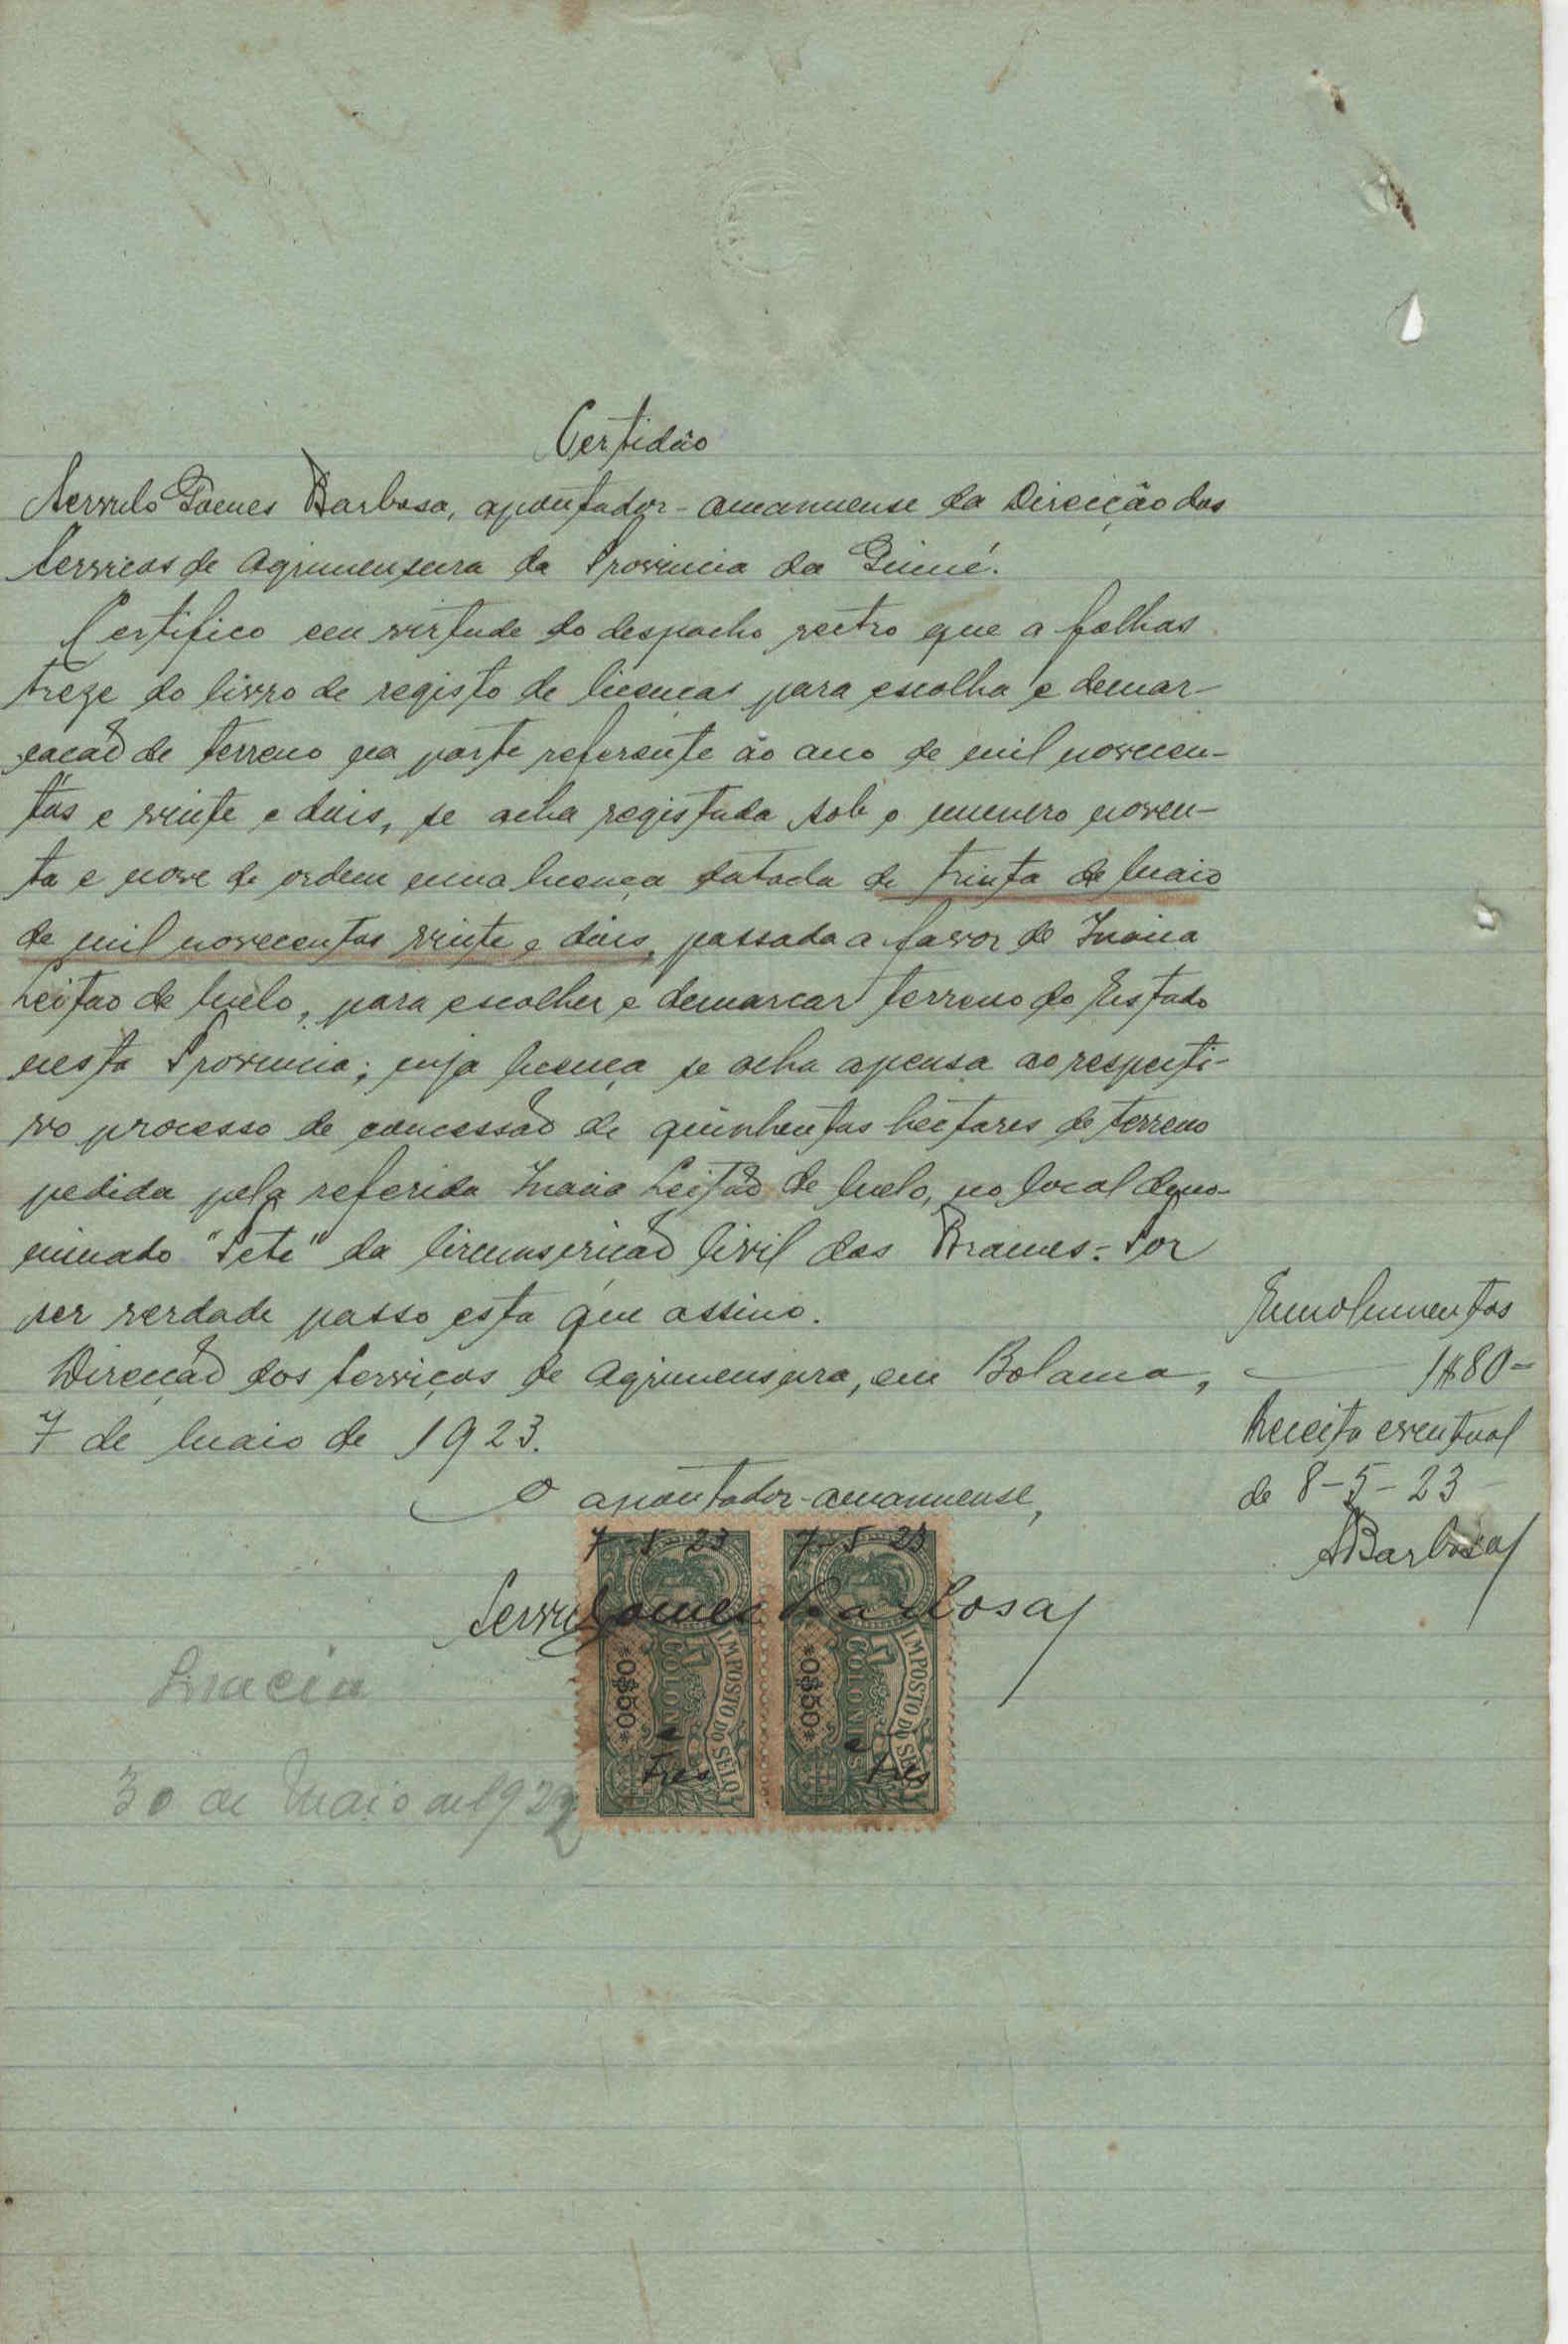 Certidão
Servulo Gomes Barbosa, apontador-amanuense da Direcção dos
Serviços de Agrimensura da Provincia da Guiné.
Certifico em virtude do despacho rectro que a folhas
treze do livro de registo de licenças para escolha e demar-
cação de terreno na parte referente ao ano de mil novecen-
tos e vinte e dois, se acha registada sob o numero noven-
ta e nove de ordem uma licença datada de trinta de Maio
de mil novecentos vinte e dois, passada a favor de Inacia
Leitão de Melo, para escolher e demarcar terreno do Estado
nesta Provincia; cuja licença se acha apensa ao respecti-
vo processo de concessão de quinhentos hectares de terreno
pedida pela referida Inacia Leitão de Melo, no local deno-
minado "Peté" da Circunscrição Civil dos Brames.- Por
ser verdade passo esta que assino.
Direcção dos Serviços de Agrimensura, em Bolama,
7 de Maio de 1923.
O apontador-amanuense,
Emolumentos
1$80-
Receita eventual
de 8-5-23
SBarbosa
7-5-23 7-5-23
Servulo Gomes Barbosa
IMPOSTO DO SELO
COLONIAS
*0$50*
e
tres
IMPOSTO DO SELO
COLONIAS
*0$50*
e
tres
Inacia
30 de Maio de 1922